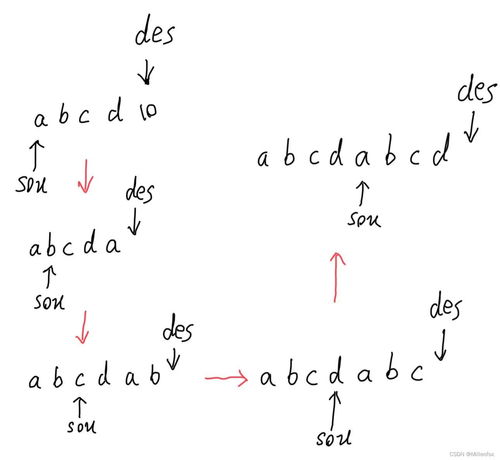 des
a b c d \0
sou
des
a b c d a
sou
des
a b c d a b
sou
des
a b c d a b c
sou
des
a b c d a b c d
sou